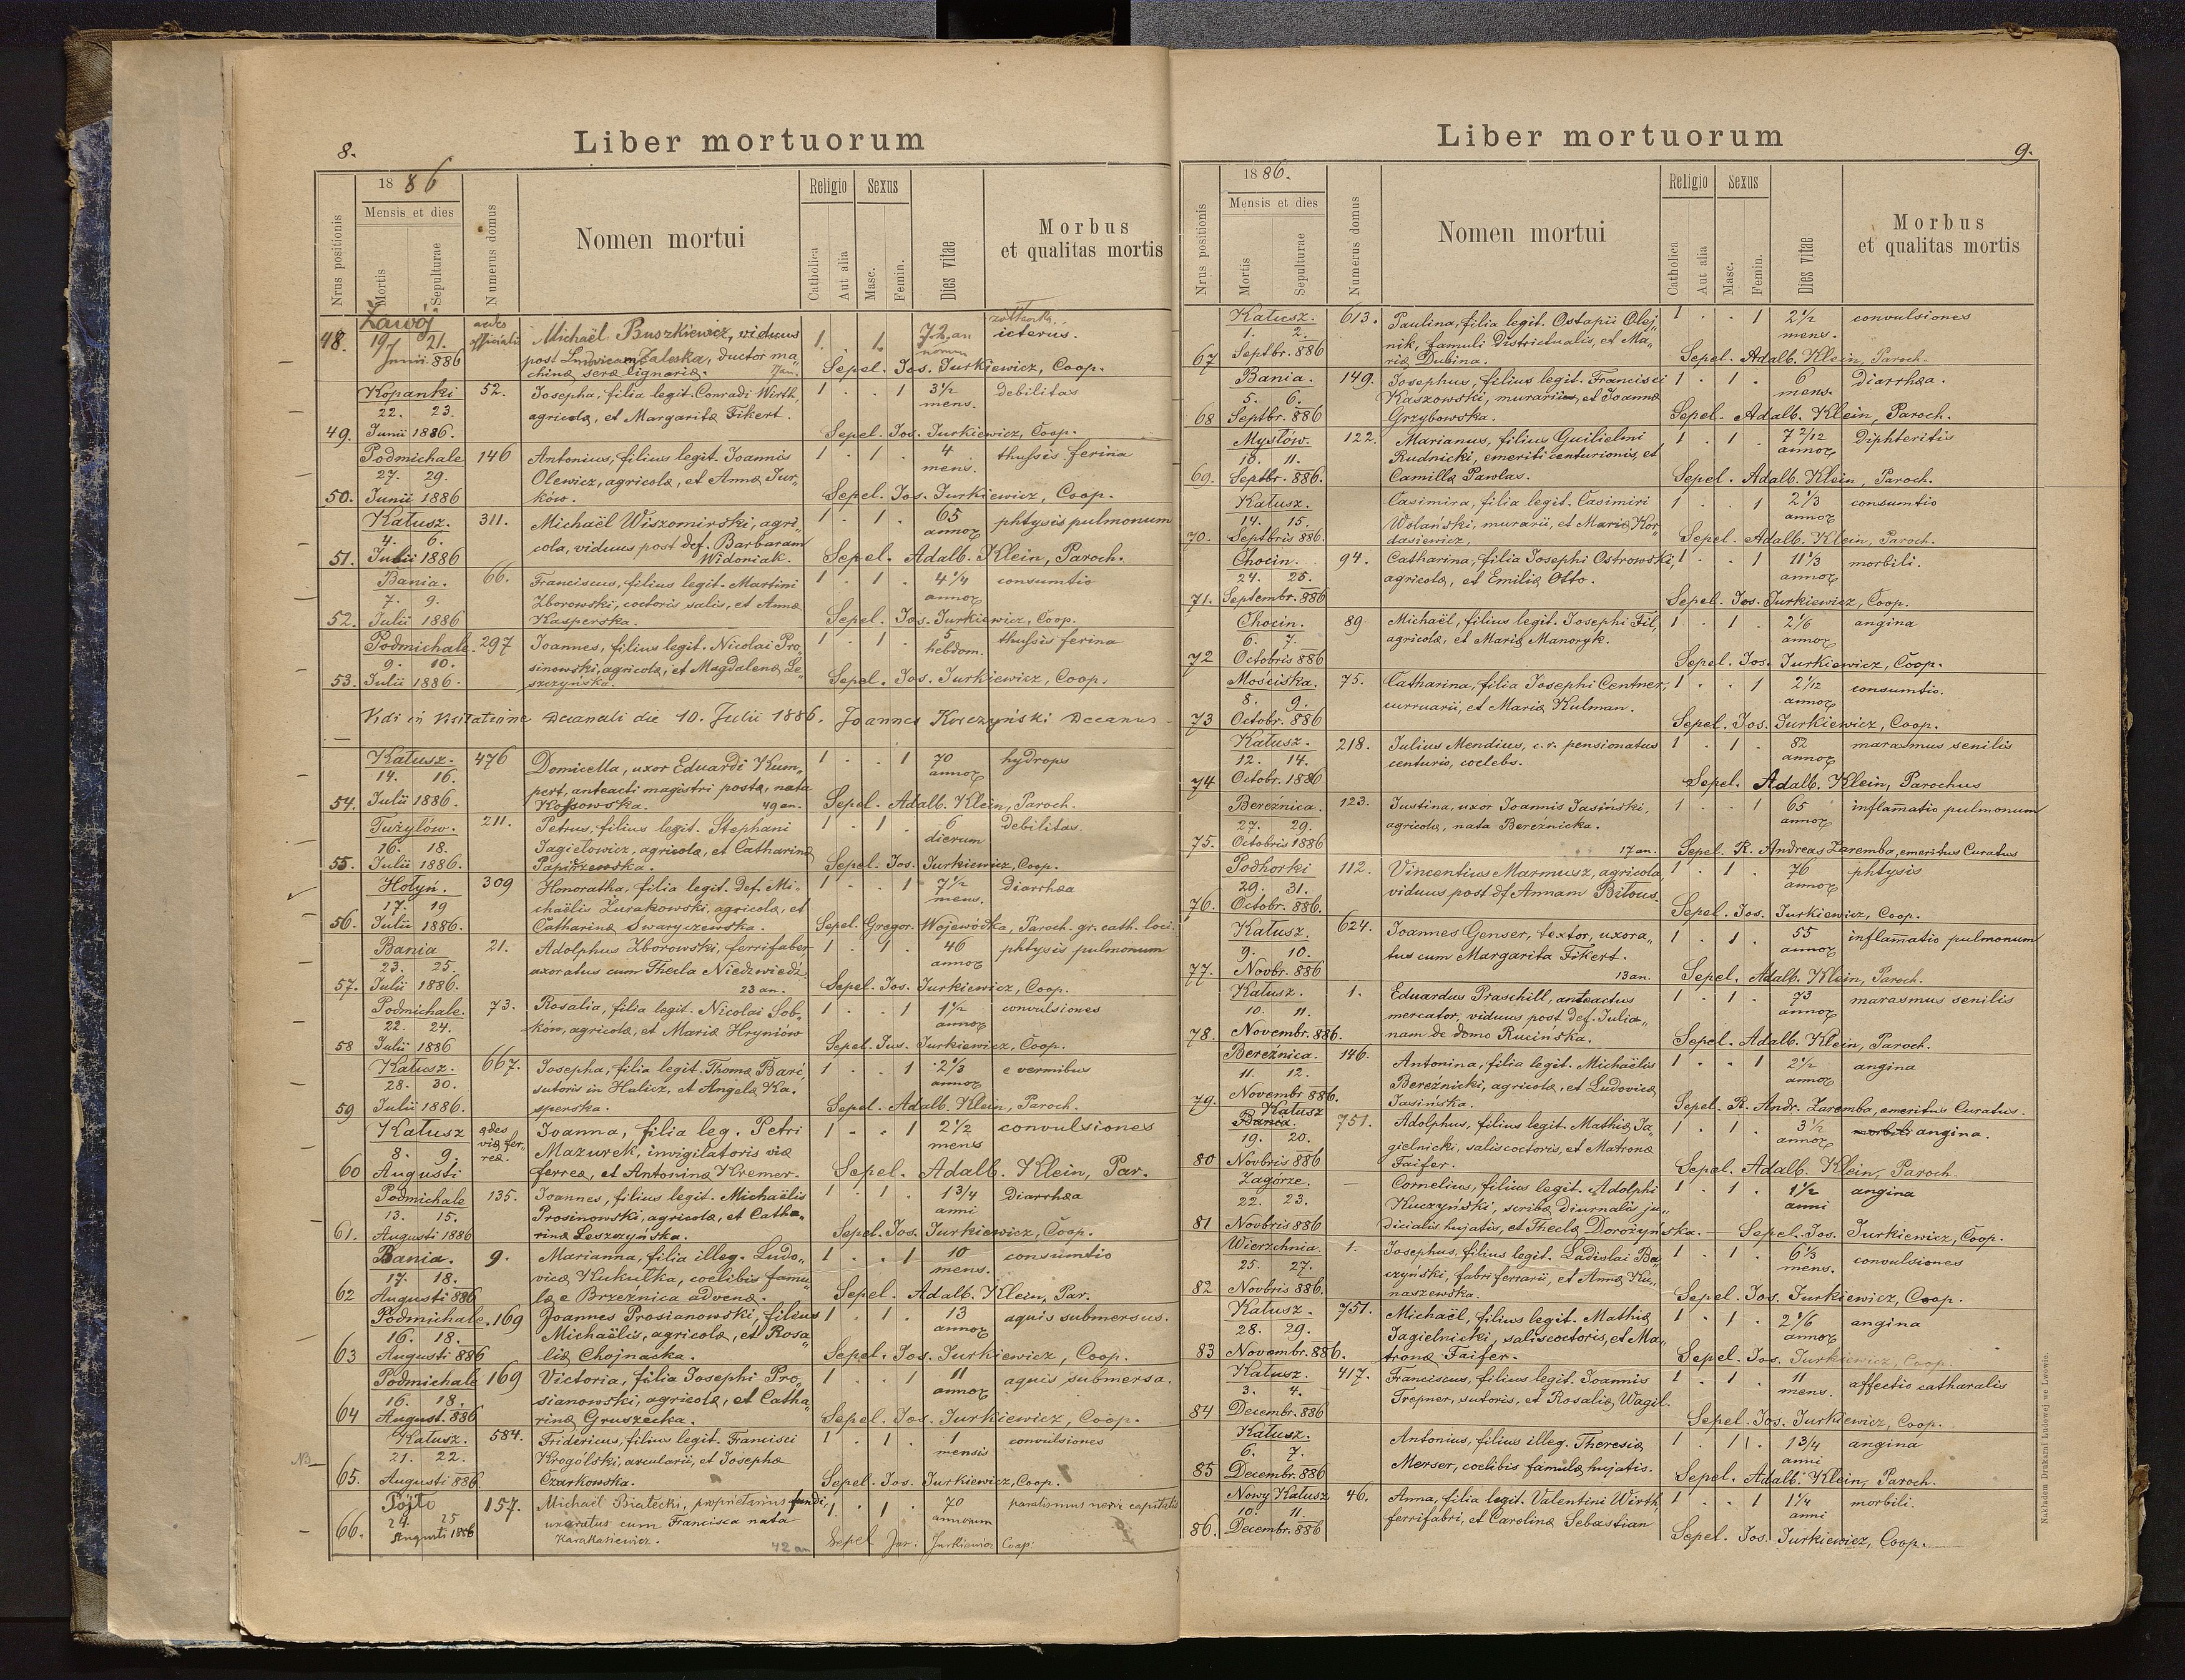 8.
Liber mortuorum
1886
Mensis et dies
Nrus positionis
Mortis
Sepulturae
Numerus domus
Nomen mortui
Religio
Sexus
Catholica
Aut alia
Masc.
Femin.
Dies vitae
Morbus
et qualitas mortis
48. Zawój 19/21. Junii 886 aedes officiales Michaël Buszkiewicz, viduus 1. . 1. 72 an icterus.
post Ludwicam Zaleska, ductor ma„
chinæ seræ lignariæ. Sepel. Jos. Jurkiewicz, Coop.
Kopanki 52. Josepha, filia legit. Conradi Wirth, 1 . . 1 3½ mens. Debilitas
22. 23. agricolæ, et Margaritæ Fikert.
49. Junii 1886. Sepel. Jos. Jurkiewicz, Coop.
Podmichale 146 Antonius, filius legit. Joannis 1 . 1 . 4 mens. thussis ferina
27. 29. Olewicz, agricolæ, et Annæ Jur„
50. Junii 1886 ków. Sepel. Jos. Jurkiewicz, Coop.
Kałusz. 311. Michaël Wiszomirski, agri„ 1 . 1 . 65 annor phtysis pulmonum
4. 6. cola, viduus post def. Barbaram
51. Julii 1886 Widoniak. Sepel. Adalb. Klein, Paroch.
Bania. 66. Franciscus, filius legit. Martini 1 . 1 . 4¼ annor consumtio
7. 9. Zborowski, coctoris salis, et Annæ
52. Julii 1886 Kasperska. Sepel. Jos. Jurkiewicz, Coop.
Podmichale. 297 Joannes, filius legit. Nicolai Pro„ 1 . 1 . 5 hebdom. thussis ferina
9. 10. sinowski, agricolæ, et Magdalenæ Le„
53. Julii 1886. szczyńska. Sepel. Jos. Jurkiewicz, Coop.
Vidi in Visitatione Decanali die 10. Julii 1886. Joannes Korczyński Decanus
Kałusz. 476 Domicella, uxor Eduardi Kum„ 1 . . 1 70 annor hydrops
14. 16. pert, anteacti magistri postæ, nata
54. Julii 1886. Kossowska. 49 an. Sepel. Adalb. Klein, Paroch.
Tużyłów. 211. Petrus, filius legit. Stephani 1 . 1 . 6 dierum Debilitas.
16. 18. Jagielowicz, agricolæ, et Catharinæ
55. Julii 1886. Papirzewska. Sepel. Jos. Jurkiewicz, Coop.
Hołyń. 309 Honoratka, filia legit. def. Mi„ 1 . . 1 7½ mens. Diarrhæa
17. 19 chaëlis Żurakowski, agricolæ, et
56. Julii 1886. Catharinæ Swaryczewska. Sepel. Gregor. Wojewódka, Paroch. gr. cath. loci.
Bania 21. Adolphus Zborowski, ferrifaber, 1 . 1 . 46 annor phtysis pulmonum
23. 25. uxoratus cum Thecla Niedzwiedź.
57. Julii 1886. 23 an. Sepel. Jos. Jurkiewicz, Coop.
Podmichale. 73. Rosalia, filia legit. Nicolai Sob„ 1 . . 1 1½ annor convulsiones
22. 24. ków, agricolæ, et Mariæ Hryniów
58 Julii 1886 Sepel. Jos. Jurkiewicz, Coop.
Kałusz. 667. Josepha, filia legit. Thomæ Bari, 1 . . 1 2⅔ annor e vermibus
28. 30. sutoris in Halicz, et Angelæ Ka„
59 Julii 1886. sperska. Sepel. Adalb. Klein, Paroch.
Kałusz ædes viæ fer„reæ. Joanna, filia leg. Petri 1 . . 1 2½ mens convulsiones
8. 9. Mazurek, invigilatoris viæ
60 Augusti ferreæ, et Antoninæ Kremer. Sepel. Adalb. Klein, Par.
Podmichale 135. Joannes, filius legit. Michaëlis 1 . 1 . 1 3/4 anni Diarrhæa
13. 15. Prosinowski, agricolæ, et Catha„
61. Augusti 1886 rinæ Leszczyńska. Sepel. Jos. Jurkiewicz, Coop.
Bania. 9. Marianna, filia illeg. Ludo„ 1 . . 1 10 mens. consumtio
17. 18. vicæ Kukułka, coelibis famu„
62 Augusti 886 læ e Brzeznica advenæ. Sepel. Adalb. Klein, Par.
Podmichale. 169 Joannes Prosianowski, filius 1 . 1 . 13 annor aquis submersus.
16. 18. Michaëlis, agricolæ, et Rosa„
63 Augusti 886 liæ Chojnaska. Sepel. Jos. Jurkiewicz, Coop.
Podmichale 169 Victoria, filia Josephi Pro„ 1 . . 1 11 annor aquis submersa.
16. 18. sianowski, agricolæ, et Catha„
64 August. 886 rinæ Gruszecka. Sepel. Jos. Jurkiewicz, Coop.
Kałusz. 584. Fridericus, filius legit. Francisci 1 . 1 . 1 mensis convulsiones
NB 21. 22. Krogolski, arcularii, et Josephæ
65. Augusti 886 Czarkowska. Sepel. Jos. Jurkiewicz, Coop.
Pójło 157. Michaël Białecki, proprietarius fundi, 1 . 1 . 70 annorum paralismus
24. 25 uxoratus cum Francisca nata
66. Augusti 1886 Karakasiewicz. 42 an Sepel Jos: Jurkiewicz Coop:
9.
Liber mortuorum
1886.
Mensis et dies
Nrus positionis
Mortis
Sepulturae
Numerus domus
Nomen mortui
Religio
Sexus
Catholica
Aut alia
Masc.
Femin.
Dies vitae
Morbus
et qualitas mortis
Kałusz. 613. Paulina, filia legit. Ostapii Olej„ 1 . . 1 2½ mens. convulsiones
1. 2. nik, famuli districtualis, et Ma„
67 Septbr. 886 riæ Dubina. Sepel. Adalb. Klein, Paroch.
Bania. 149. Josephus, filius legit. Francisci 1 . 1 . 6 mens. diarrhæa.
5. 6. Kaszowski, murarii, et Joannæ
68 Septbr. 886 Grzybowska. Sepel. Adalb. Klein, Paroch.
Mysłów. 122. Marianus, filius Guilielmi 1 . 1 . 7 2/12 annor Diphteritis
10. 11. Rudnicki, emeriti centurionis, et
69. Septbr. 886. Camillæ Pawlas. Sepel. Adalb. Klein, Paroch.
Kałusz. Casimira, filia legit. Casimiri 1 . . 1 2⅓ annor consumtio
14. 15. Wolański, murarii, et Mariæ Kor„
70. Septbris 886. dasiewicz. Sepel. Adalb. Klein, Paroch.
Chocin. 94. Catharina, filia Josephi Ostrowski, 1 . . 1 11⅓ annor morbili.
24. 25. agricolæ, et Emiliæ Otto.
71. Septembr. 886 Sepel. Jos. Jurkiewicz, Coop.
Chocin. 89 Michaël, filius legit. Josephi Fil, 1 . 1 . 2⅙ annor angina
6. 7. agricolæ, et Mariæ Manoryk.
72 Octobris 886 Sepel. Jos. Jurkiewicz, Coop.
Mościska. 75. Catharina, filia Josephi Centner, 1 . . 1 2 1/12 annor consumtio.
8. 9. curruarii, et Mariæ Kulman.
73 Octobr. 886 Sepel. Jos. Jurkiewicz, Coop.
Kałusz. 218. Julius Mendius, c. r. pensionatus 1 . 1 . 82 annor marasmus senilis
12. 14. centuris, coelebs.
74 Octobr. 1886 Sepel. Adalb. Klein, Parochus
Bereźnica. 123. Justina, uxor Joannis Jasiński, 1 . . 1 65 annor inflam̄atio pulmonum
27. 29. agricolæ, nata Bereźnicka.
75. Octobris 1886 17 an. Sepel. R. Andreas Zaremba, emeritus Curatus
Podhorki 112. Vincentius Marmusz, agricola, 1 . 1 . 76 annor phtysis
29. 31. viduus post df Annam Bitous
76. Octobr. 886. Sepel. Jos. Jurkiewicz, Coop.
Kałusz. 624. Joannes Genser, textor, uxora„ 1 . 1 . 55 annor inflam̄atio pulmonum
9. 10. tus cum Margarita Fikert.
77. Novbr. 886 13 an. Sepel. Adalb. Klein, Paroch.
Kałusz. 1. Eduardus Praschill, anteactus 1 . 1 . 73 annor marasmus senilis
10. 11. mercator, viduus post def. Julia„
78. Novembr. 886. nam de domo Rucińska. Sepel. Adalb. Klein, Paroch.
Bereźnica. 146. Antonina, filia legit. Michaëlis 1 . . 1 2½ annor angina
11. 12. Bereźnicki, agricolæ, et Ludovicæ
79. Novembr 886. Jasińska. Sepel. R. Andr. Zaremba, emeritus Curatus.
Kałusz Bania. 751. Adolphus, filius legit. Mathiæ Ja„ 1 . 1 . 3½ annor morbili angina.
19. 20. gielnicki, saliscoctoris, et Matronæ
80 Novbris 886 Faifer. Sepel. Adalb. Klein, Paroch.
Zagórze. — Cornelius, filius legit. Adolphi 1 . 1 . 1½ anni angina
22. 23. Kuczyński, scribæ diurnalis ju„
81 Novbris 886 dicialis hujatis, et Theclæ Dorożyńska. — Sepel. Jos. Jurkiewicz, Coop.
Wierzchnia. 1. Josephus, filius legit. Ladislai Ba„ 1 . 1 . 6⅓ mens. convulsiones
25. 27. czyński, fabri ferrarii, et Annæ Ku„
82 Novbris 886. naszewska. Sepel. Jos. Jurkiewicz, Coop.
Kałusz. 751. Michaël, filius legit. Mathiæ 1 . 1 . 2⅙ annor angina
28. 29. Jagielnicki, saliscoctoris, et Ma„
83 Novembr. 886. tronæ Faifer. Sepel. Jos. Jurkiewicz, Coop.
Kałusz. 417. Franciscus, filius legit. Joannis 1 . 1 . 11 mens. affectio catharalis
3. 4. Trepner, sutoris, et Rosaliæ Wagil.
84 Decembr. 886 Sepel. Jos. Jurkiewicz, Coop.
Kałusz. Antonius, filius illeg. Theresiæ 1 . 1 . 1 3/4 anni angina
6. 7. Merser, coelibis famulæ hujatis.
85 Decembr. 886 Sepel. Adalb. Klein, Paroch.
Nowy Kałusz 46. Anna, filia legit. Valentini Wirth, 1 . . 1 1¼ anni morbili.
10. 11. ferrifabri, et Carolinæ Sebastian
86. Decembr. 886 Sepel. Jos. Jurkiewicz, Coop.
Nakładem Drukarni Ludowej we Lwowie.